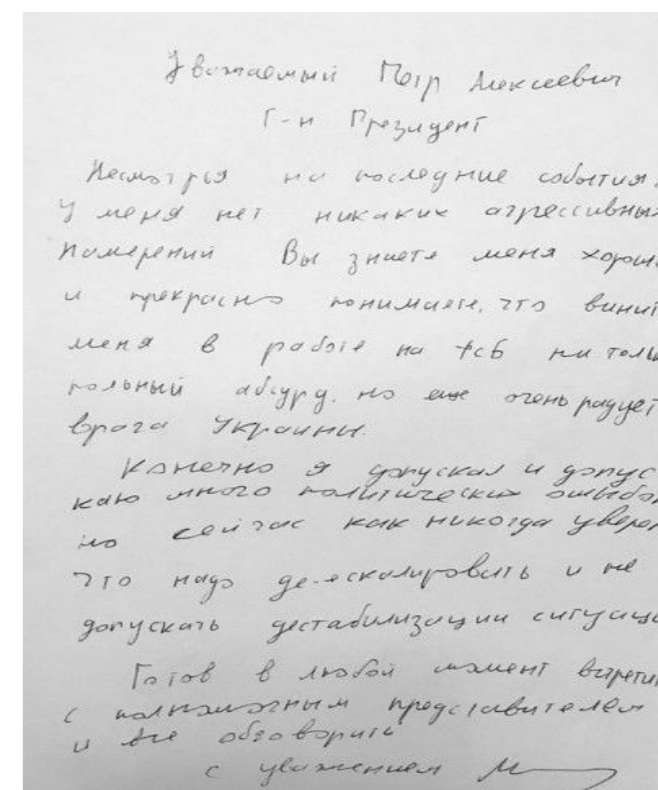 Уважаемый Петр Алексеевич
Г-н Президент
Несмотрья на последние события.
у меня нет никаких агрессивных
намерений Вы знаете меня хорош
и прекрасно понимаете, что винит
меня в работе на ФСБ ни толь
полный абсурд, но еще очень радует
врага Украины.
Конечно я допускал и допус
каю много политических ошибок
но сейчас как никогда уверен
что надо де-эскалировать и не
допускать дестабилизации ситуаци
Готов в любой момент встрети
с полномочным представителем
и все обговорить
с уважением